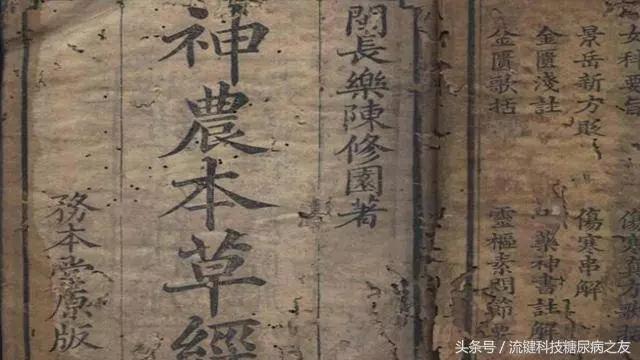 女科要
傷寒真方歌
景岳新方貶
傷寒串解
金匱淺註
藥神書註解
金匱歌括
靈樞素問節要
閩長樂陳修園著
神農本草經
務本堂原版
头条号 / 流键科技糖尿病之友